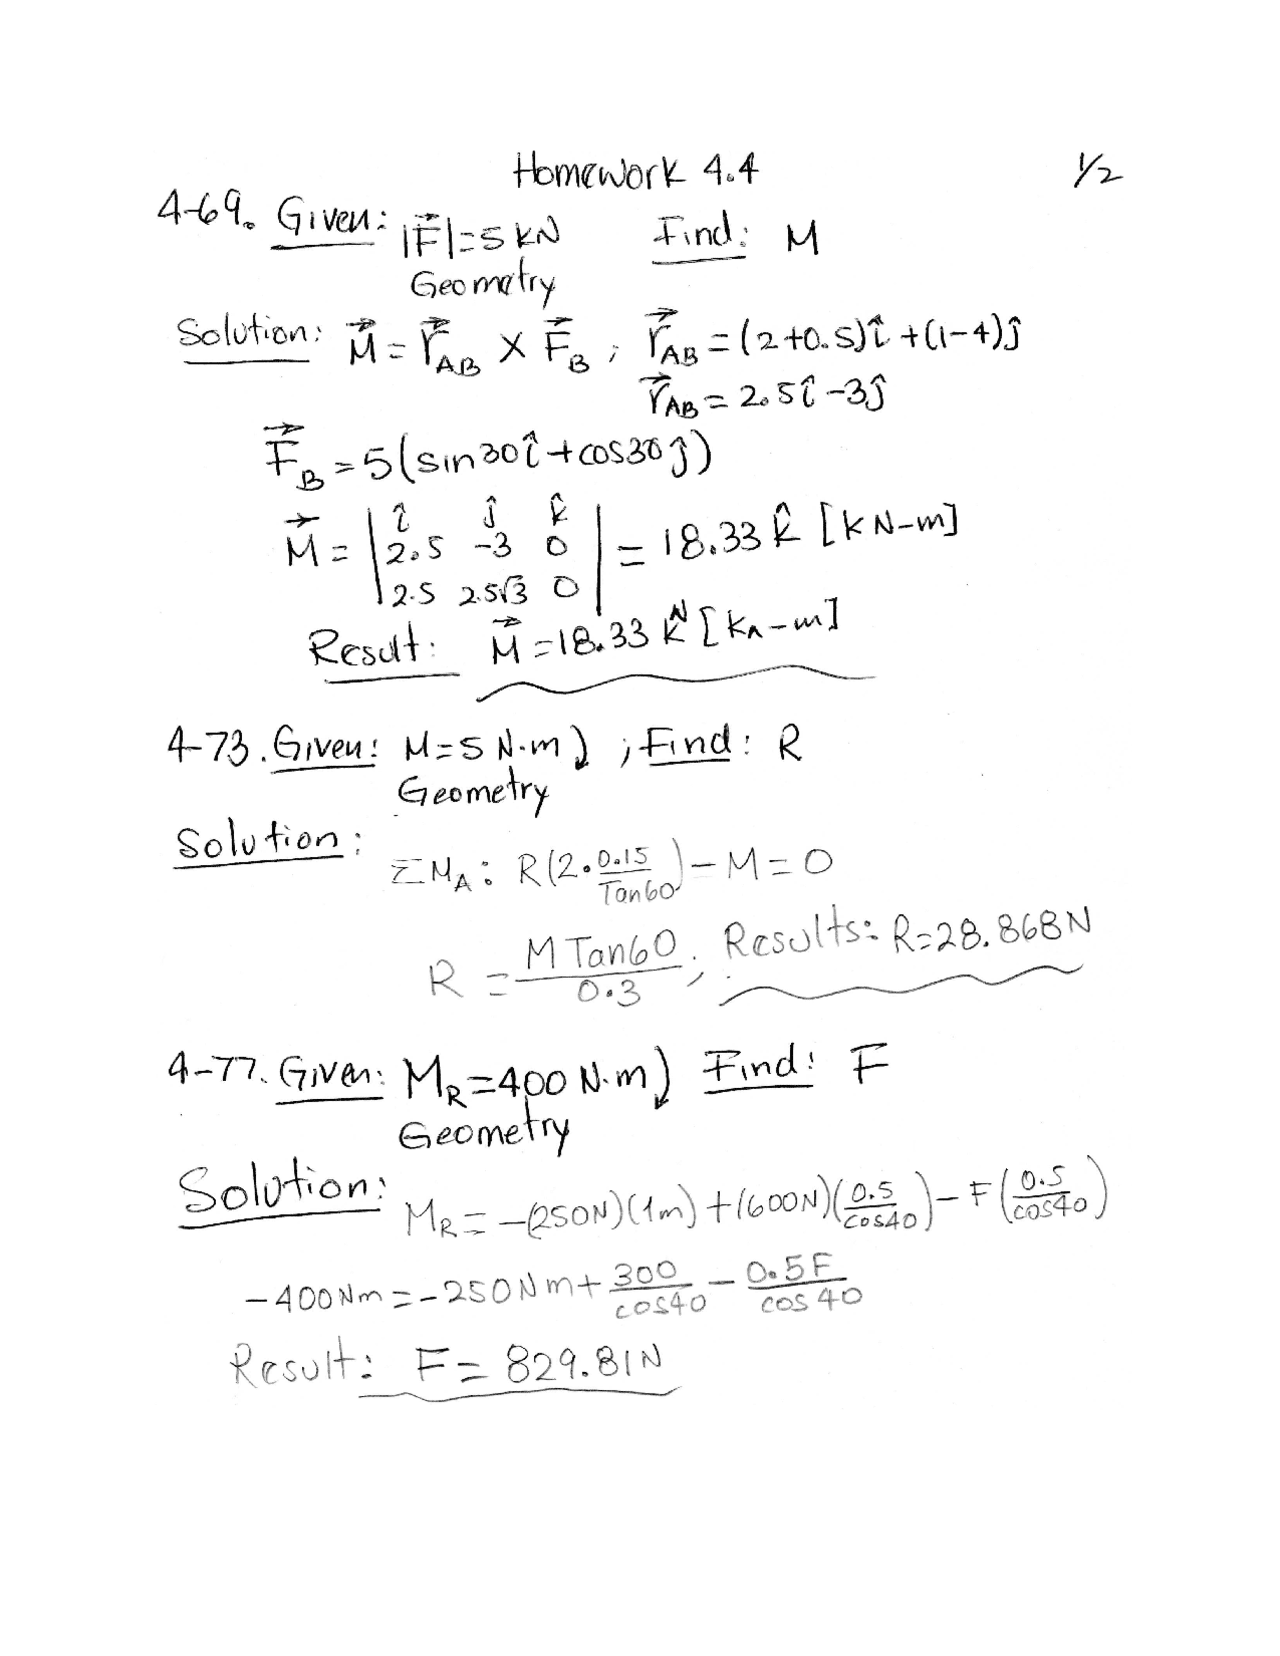 Homework 4.4 1/2
4-69. Given: |F⃗|=5 kN Find: M
Geometry
Solution: M⃗ = r⃗_AB × F⃗_B ; r⃗_AB = (2+0.5)î +(1-4)ĵ
r⃗_AB = 2.5î -3ĵ
F⃗_B = 5(sin30î + cos30ĵ)
M⃗ = | î ĵ k̂ |
| 2.5 -3 0 | = 18.33 k̂ [kN-m]
| 2.5 2.5√3 0 |
Result: M⃗ = 18.33 k̂ [kN-m]
4-73. Given: M=5 N·m ⤵ ; Find: R
Geometry
Solution:
ΣM_A: R(2·0.15/Tan60) - M = 0
R = M Tan60/0.3 ; Results: R=28.868N
4-77. Given: M_R=400 N·m ⤵ Find: F
Geometry
Solution:
M_R = -(250N)(1m) + (600N)(0.5/cos40) - F(0.5/cos40)
-400Nm = -250Nm + 300/cos40 - 0.5F/cos40
Result: F = 829.81N